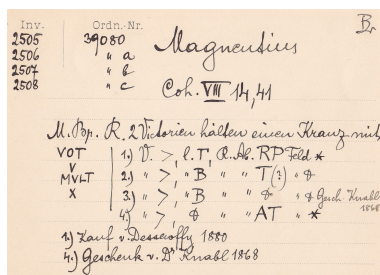 Br
Inv. Ordn.-Nr.
2505 39080
2506 " a
2507 " b
2508 " c
Magnentius
Coh. VIII 14,41
M. Bp. R. 2 Victorien halten einen Kranz mit
VOT
V
MVLT
X
1.) V. >, l. T, R. Ab. RP Feld *
2.) " >, " B " " T (3) " ⌽
3.) " >, " B " " ⌽ " ⌽ Gesch. Knabl 1868
4.) " >, " ⌽ " " AT " *
1.) Kauf v. Dessewffy 1880
4.) Geschenk v. Dr Knabl 1868